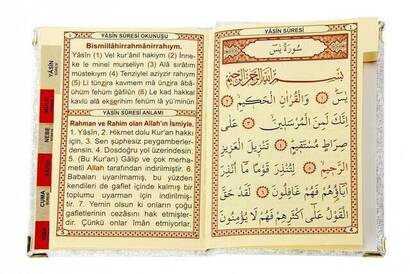 YÂSİN SÛRESİ OKUNUŞU
Bismillâhirrahmânirrahıym.
Yâsîn (1) Vel kur'ânil hakiym (2) İnne-
ke le minel murseliyn (3) Alâ sırâtım
müstekıym (4) Tenziylel aziyzir rahıym
(5) Li tünzira kavmen mâ ünzira âbâ-
ühüm fehüm ğâfilûn (6) Le kad hakkal
kavlü alâ ekserihim fehüm lâ yü'minûn
YÂSİN SÛRESİ ANLAMI
Rahman ve Rahim olan Allah'ın İsmiyle.
1. Yâsîn, 2. Hikmet dolu Kur'an hakkı
için, 3. Sen şüphesiz peygamberler-
densin. 4. Dosdoğru yol üzerindesin.
5. (Bu Kur'an) Gâlip ve çok merha-
metli Allah tarafından indirilmiştir. 6.
Babaları uyarılmamış, bu yüzden
kendileri de gaflet içinde kalmış bir
toplumu uyarman için indirilmiş-
tir. 7. Yemin olsun ki onların çoğu
gafletlerinin cezasını hak etmişler-
dir. Çünkü onlar iman etmiyorlar.
YÂSİN
MÜLK
NEBE
CUMA
YÂSİN SÛRESİ
سُورَةُ يٰسٓ
بِسْمِ اللّٰهِ الرَّحْمٰنِ الرَّحِيمِ
يٰسٓ ﴿١﴾ وَالْقُرْاٰنِ الْحَكِيمِ ﴿٢﴾
اِنَّكَ لَمِنَ الْمُرْسَلِينَ ﴿٣﴾ عَلٰى
صِرَاطٍ مُسْتَقِيمٍ ﴿٤﴾ تَنْزِيلَ الْعَزِيزِ
الرَّحِيمِ ﴿٥﴾ لِتُنْذِرَ قَوْمًا مَٓا اُنْذِرَ
اٰبَٓاؤُ۬هُمْ فَهُمْ غَافِلُونَ ﴿٦﴾ لَقَدْ حَقَّ
الْقَوْلُ عَلٰٓى اَكْثَرِهِمْ فَهُمْ لَا يُؤْمِنُونَ